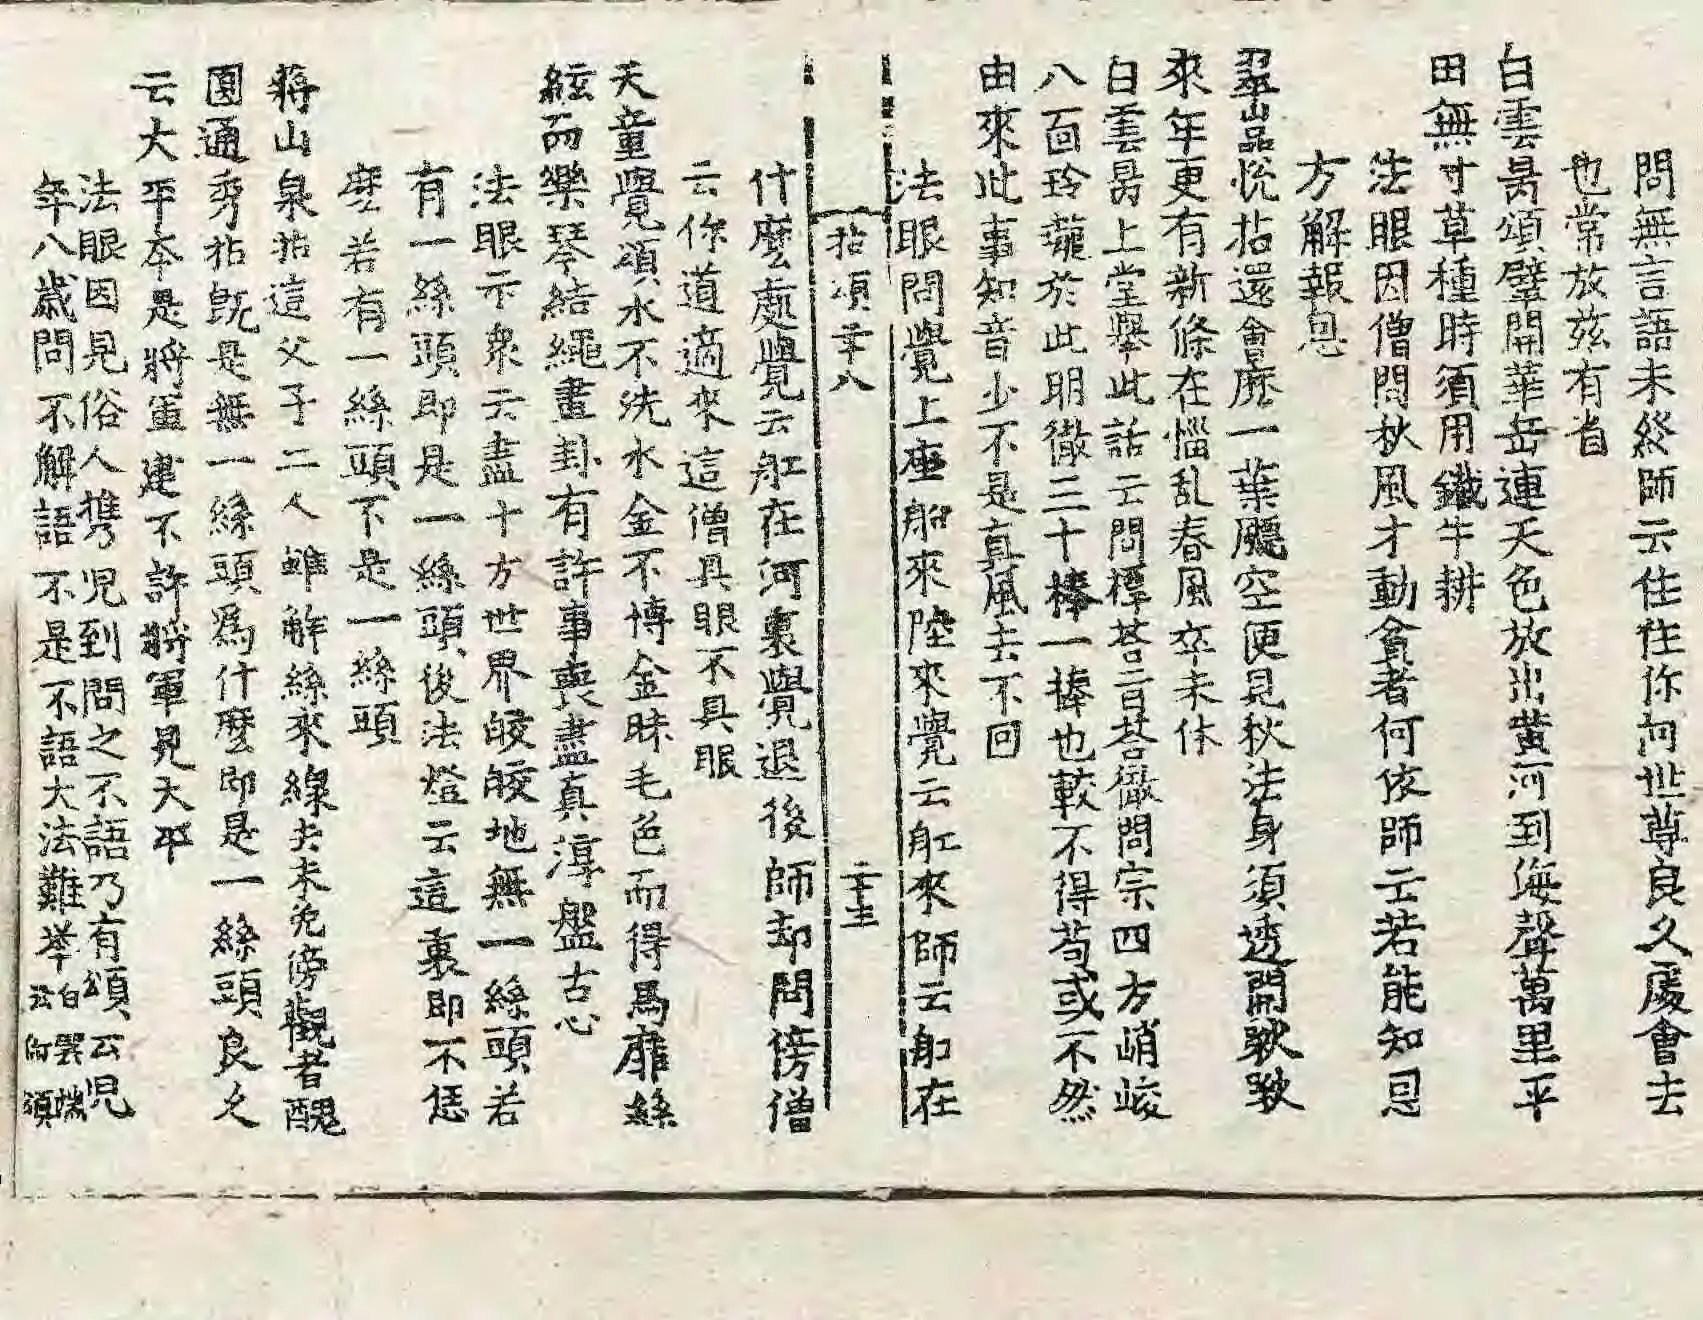 問無言語未終師云住住你向世尊良久處會去
也常放玆有省
白雲昺頌擘開華岳連天色放出黃河到海聲萬里平
田無寸草種時須用鐵牛耕
法眼因僧問秋風才動貧者何依師云若能知恩
方解報恩
翠嵓悅拈還會麽一葉飄空便見秋法身須透閙
來年更有新條在惱乱春風卒未休
白雲昺上堂擧此話云問標荅旨荅徹問宗四方峭峻
八面玲瓏於此明徹三十棒一棒也較不得苟或不然
由來此事知音少不是真風去不回
法眼問覺上座船來陸來覺云舡來師云舡在
拈頌 二十六 八
什麽處覺云舡在河裏覺退後師却問傍僧
云你道適來這僧具眼不具眼
天童覺頌水不洗水金不博金昧毛色而得馬靡絲
絃而樂琴結繩畫卦有許事喪盡真淳盤古心
法眼示衆云盡十方世界皎皎地無一絲頭若
有一絲頭即是一絲頭後法燈云這裏即不恁
麽若有一絲頭不是一絲頭
蔣山泉拈這父子二人雖解絲來線去未免傍觀者醜
圓通秀拈旣是無一絲頭爲什麽即是一絲頭良久
云大平本是將軍建不許將軍見大平
法眼因見俗人携児到問之不語乃有頌云児
年八歲問不解語不是不語大法難擧 白雲端云何須